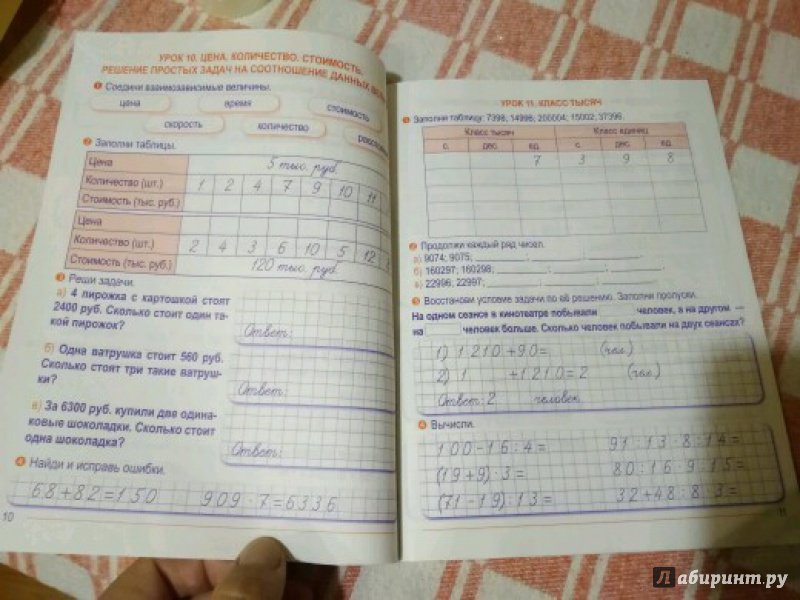 УРОК 10. ЦЕНА. КОЛИЧЕСТВО. СТОИМОСТЬ.
РЕШЕНИЕ ПРОСТЫХ ЗАДАЧ НА СООТНОШЕНИЕ ДАННЫХ
1 Соедини взаимозависимые величины.
цена время стоимость
скорость количество
2 Заполни таблицы.
Цена 5 тыс. руб.
Количество (шт.) 1 2 4 7 9 10 11
Стоимость (тыс. руб.)
Цена
Количество (шт.) 2 4 3 6 10 5 12
Стоимость (тыс. руб.) 120 тыс. руб.
3 Реши задачи.
а) 4 пирожка с картошкой стоят
2400 руб. Сколько стоит один та-
кой пирожок?
Ответ:
б) Одна ватрушка стоит 560 руб.
Сколько стоят три такие ватруш-
ки?
Ответ:
в) За 6300 руб. купили две одина-
ковые шоколадки. Сколько стоит
одна шоколадка?
Ответ:
4 Найди и исправь ошибки.
68+82=150 909·7=6336
10
УРОК 11. КЛАСС ТЫСЯЧ
1 Заполни таблицу: 7398; 14996; 200004; 15002; 37396.
Класс тысяч Класс единиц
с. дес. ед. с. дес. ед.
7 3 9 8
2 Продолжи каждый ряд чисел.
а) 9074; 9075;
б) 160297; 160298;
в) 22996; 22997;
3 Восстанови условие задачи по её решению. Заполни пропуски.
На одном сеансе в кинотеатре побывали человек, а на другом —
на человек больше. Сколько человек побывали на двух сеансах?
1) 1210+90= (чел.)
2) 1 +1210=2 (чел.)
Ответ: 2 человек.
4 Вычисли.
100-16:4= 91:13·8:14=
(19+9)·3= 80:16·9:15=
(71-19):13= 32+48:8·3=
11
Лабиринт.ру